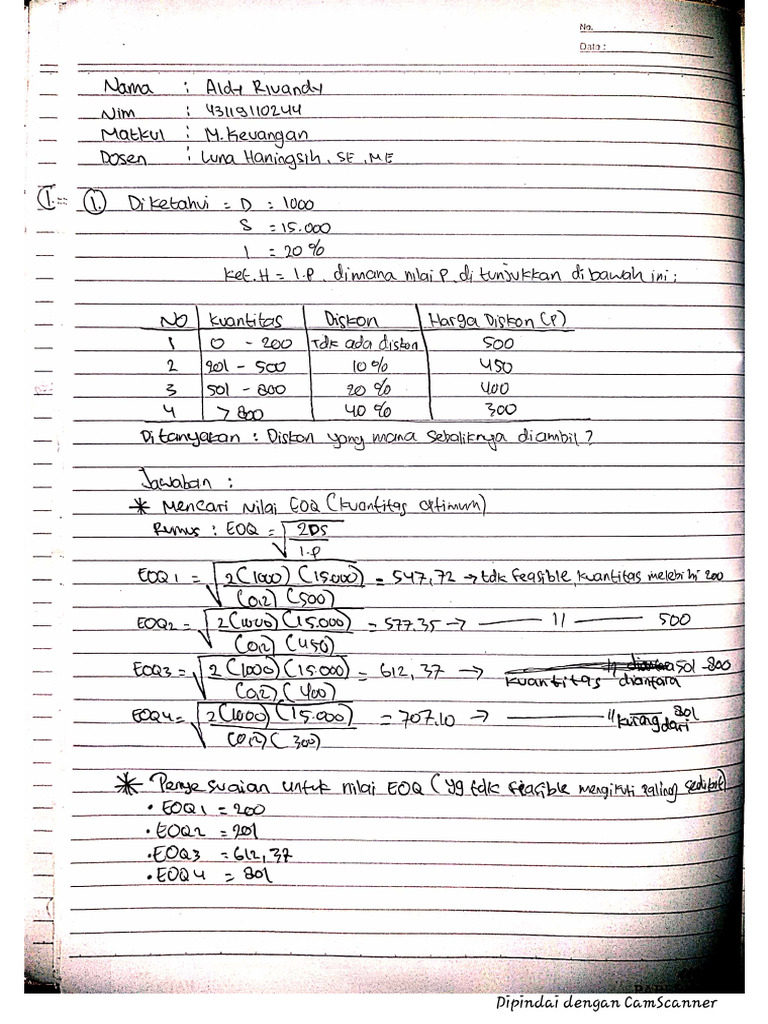 No.
Date :
Nama : Aldy Rivandy
Nim : 43119110244
Matkul : M. Keuangan
Dosen : Luna Haningsih, SE, ME
1. Diketahui = D : 1000
S = 15.000
I = 20 %
ket. H = I.P. dimana nilai P ditunjukkan dibawah ini :
NO Kuantitas Diskon Harga Diskon (P)
1 0 - 200 Tdk ada diskon 500
2 201 - 500 10 % 450
3 501 - 800 20 % 400
4 > 800 40 % 300
Ditanyakan : Diskon yang mana sebaliknya diambil ?
Jawaban :
* Mencari Nilai EOQ (kuantitas optimum)
Rumus : EOQ = √2DS / I.P
EOQ1 = √2(1000)(15.000) / (0,2)(500) = 547,72 → tdk feasible, kuantitas melebihi 200
EOQ2 = √2(1000)(15.000) / (0,2)(450) = 577.35 → — 11 — 500
EOQ3 = √2(1000)(15.000) / (0,2)(400) = 612,37 → kuantitas diantara 501 - 800
EOQ4 = √2(1000)(15.000) / (0,2)(300) = 707.10 → — 11 kurang dari 801
* Penyesuaian untuk nilai EOQ (yg tdk feasible mengikuti paling sedikit)
• EOQ1 = 200
• EOQ2 = 201
• EOQ3 = 612,37
• EOQ4 = 801
Dipindai dengan CamScanner